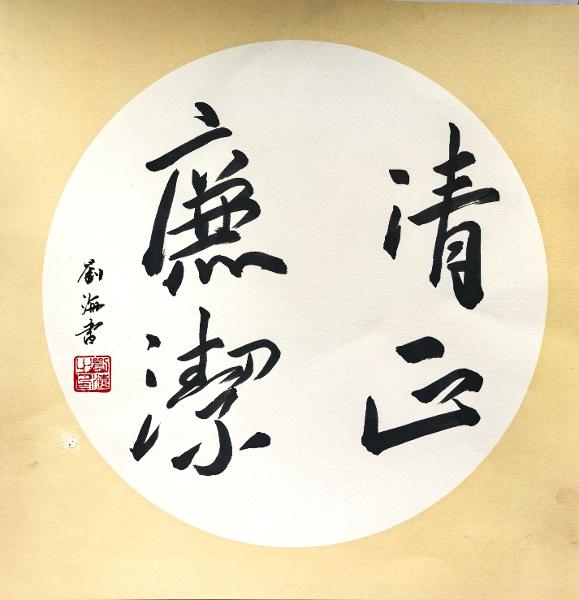 清正
廉潔
劉海書